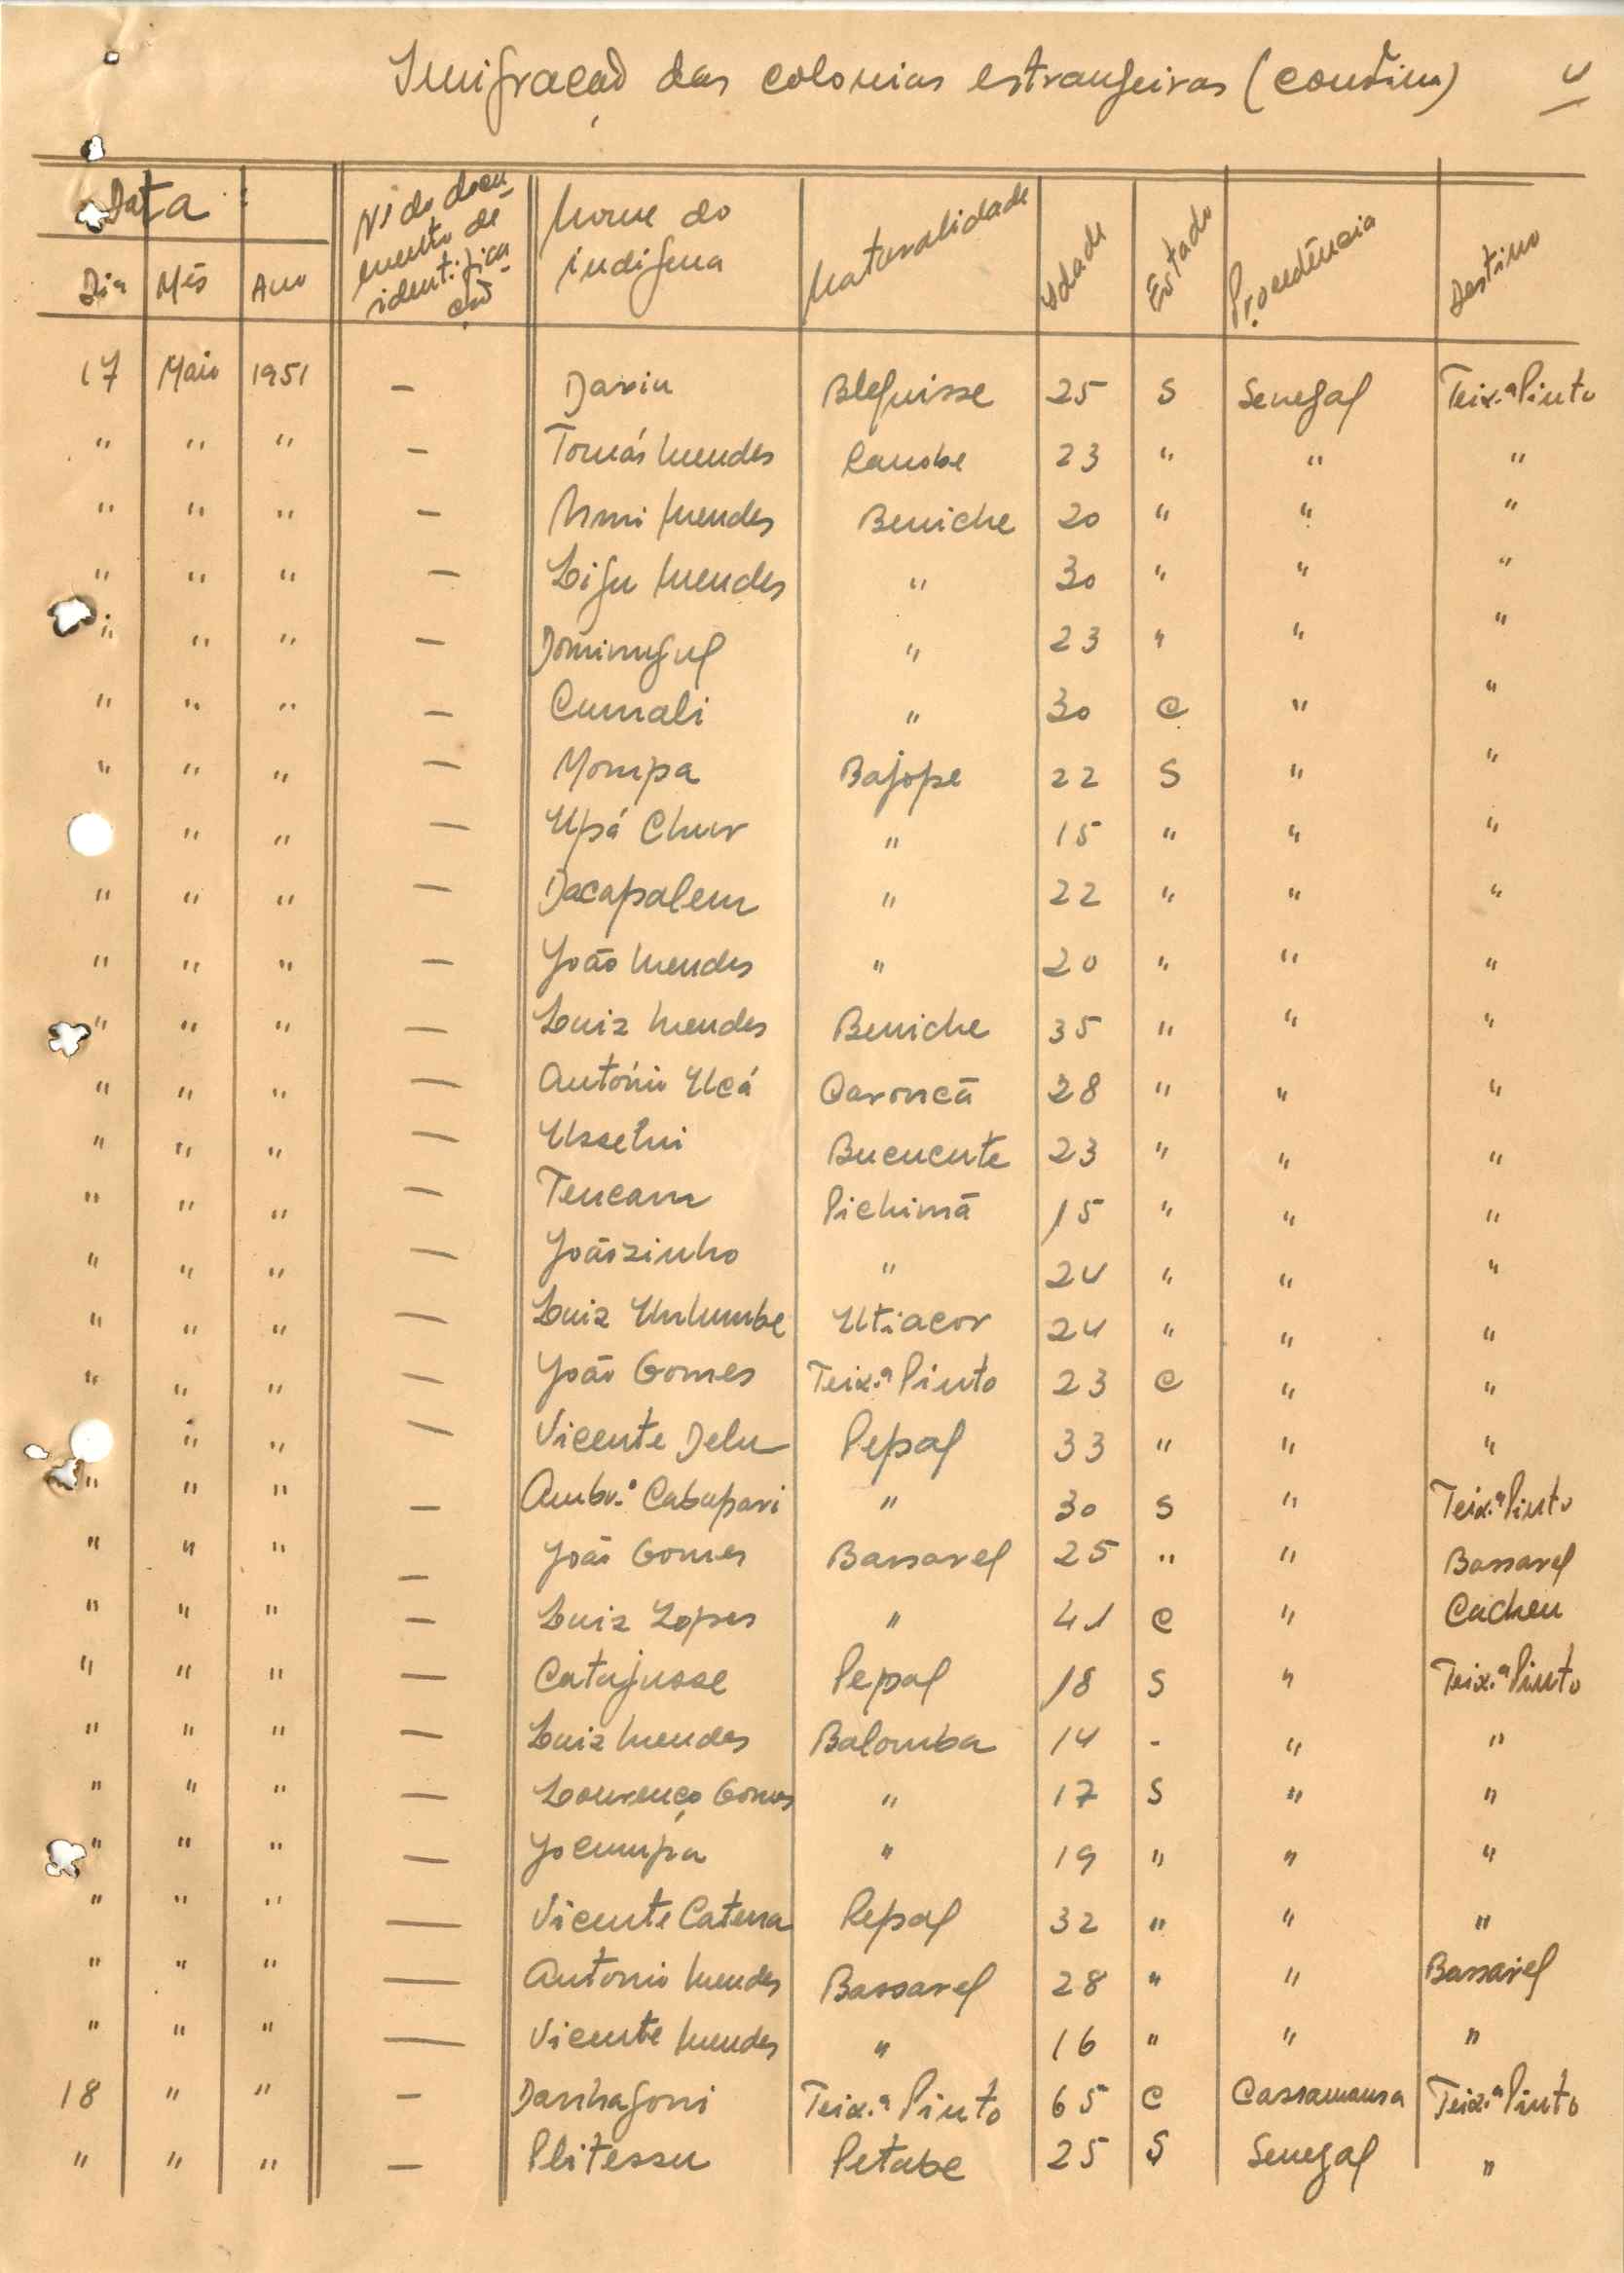 Imigração das colonias estrangeiras (continua) 4
Data Nº do docu- Nome do Naturalidade Idade Estado Procedência Destino
mento de indigena
Dia Mês Ano identifica-
ção
17 Maio 1951 — Dariu Blequisse 25 S Senegal Teix.ª Pinto
" " " — Tomás Mendes Canobe 23 " " "
" " " — Mendes Beniche 20 " " "
" " " — Ligu Mendes " 30 " " "
" " " — " 23 " " "
" " " — Cumali " 30 C " "
" " " — Mompa Bajope 22 S " "
" " — Upá Chur " 15 " " "
" " " — Dacapalem " 22 " " "
" " " — João Mendes " 20 " " "
" " " — Luiz Mendes Beniche 35 " " "
" " " — António Ucá Caroncã 28 " " "
" " " — Usselui Bucucute 23 " " "
" " " — Tencam Pichimã 15 " " "
" " " — Joãozinho " 24 " " "
" " " — Luiz Utiacor 24 " " "
" " " — João Gomes Teix.ª Pinto 23 C " "
" " — Vicente Delu Pepal 33 " " "
" " " — Ambr.º Cabupari " 30 S " Teix.ª Pinto
" " " — João Gomes Bassarel 25 " " Bassarel
" " " — Luiz Lopes " 41 C " Cacheu
" " " — Catajusse Pepal 18 S " Teix.ª Pinto
" " " — Luiz Mendes Balomba 14 - " "
" " " — Lourenço Gomes " 17 S " "
" " " — Jocumpa " 19 " " "
" " " — Vicente Catema Pepal 32 " " "
" " " — Antonio Mendes Bassarel 28 " " Bassarel
" " " — Vicente Mendes " 16 " " "
18 " " — Danhagoni Teix.ª Pinto 65 C Cassamansa Teix.ª Pinto
" " " — Plitessu Petabe 25 S Senegal "